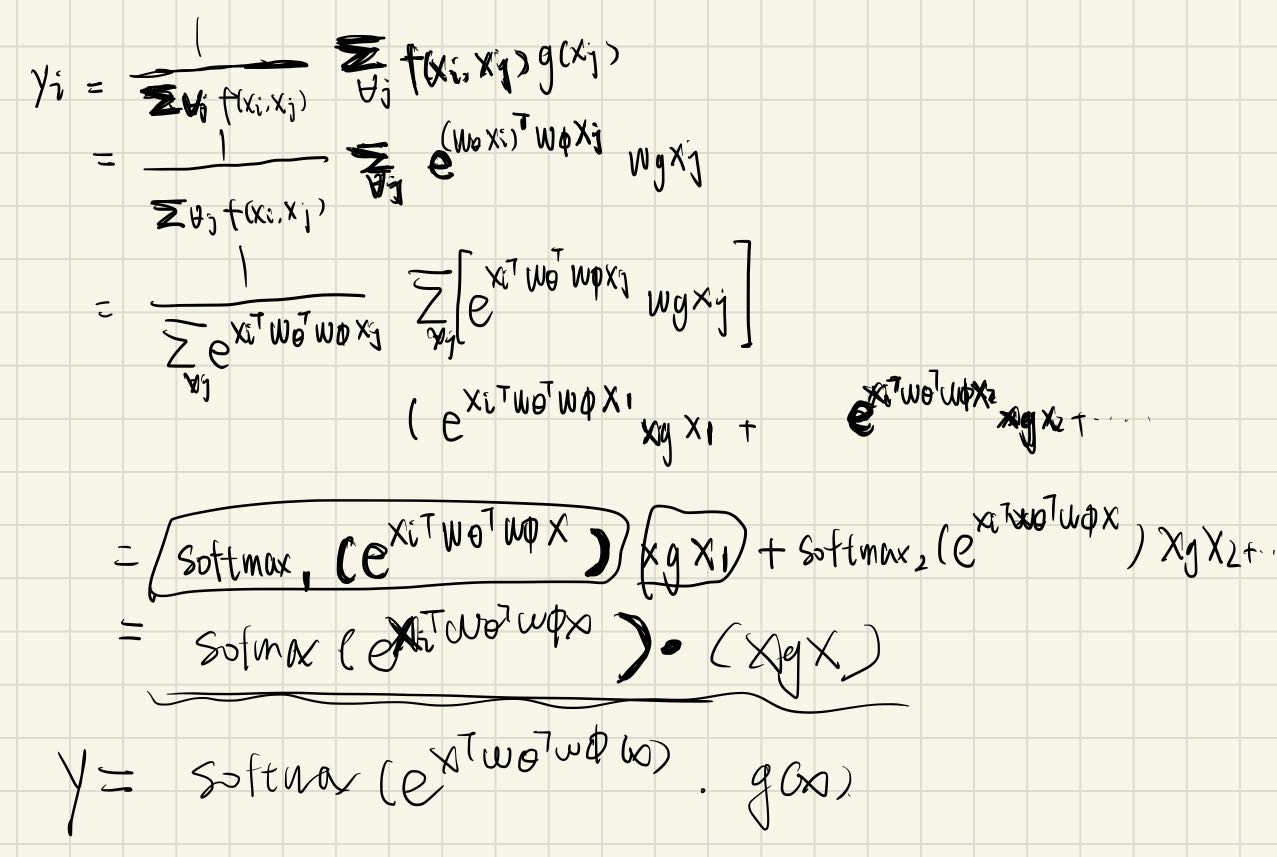 yi = 1 / Σ∀j f(xi, xj) Σ∀j f(xi, xj) g(xj)
= 1 / Σ∀j f(xi, xj) Σ∀j e^(wθxi)^T wφxj wgxj
= 1 / Σ∀j e^xi^T wθ^T wφxj Σ∀j [e^xi^T wθ^T wφxj wgxj]
(e^xi^T wθ^T wφx1 xgx1 + e^xi^T wθ^T wφx2 xgx2 + ......
= softmax1 (e^xi^T wθ^T wφx) xgx1 + softmax2 (e^xi^T wθ^T wφx) xgx2 + ...
= sofmax (e^xi^T wθ^T wφx) · (xgx)
y = softmax (e^x^T wθ^T wφ(x) . g(x)